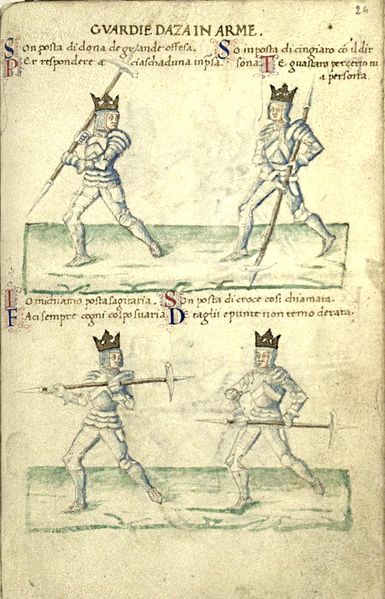 GVARDIE DAZA IN ARME.
Son posta di dona de grande offesa.
Per respondere a ciaschaduna inpsa.
So in posta di cingiaro co il dir
sona. Te guastaro per certo tu
a persona.
Io mi chiamo posta sagitaria.
Faci sempre cogni colpo svaria.
Son posta di croce cosi chiamata.
De taglii e punte non temo derata.